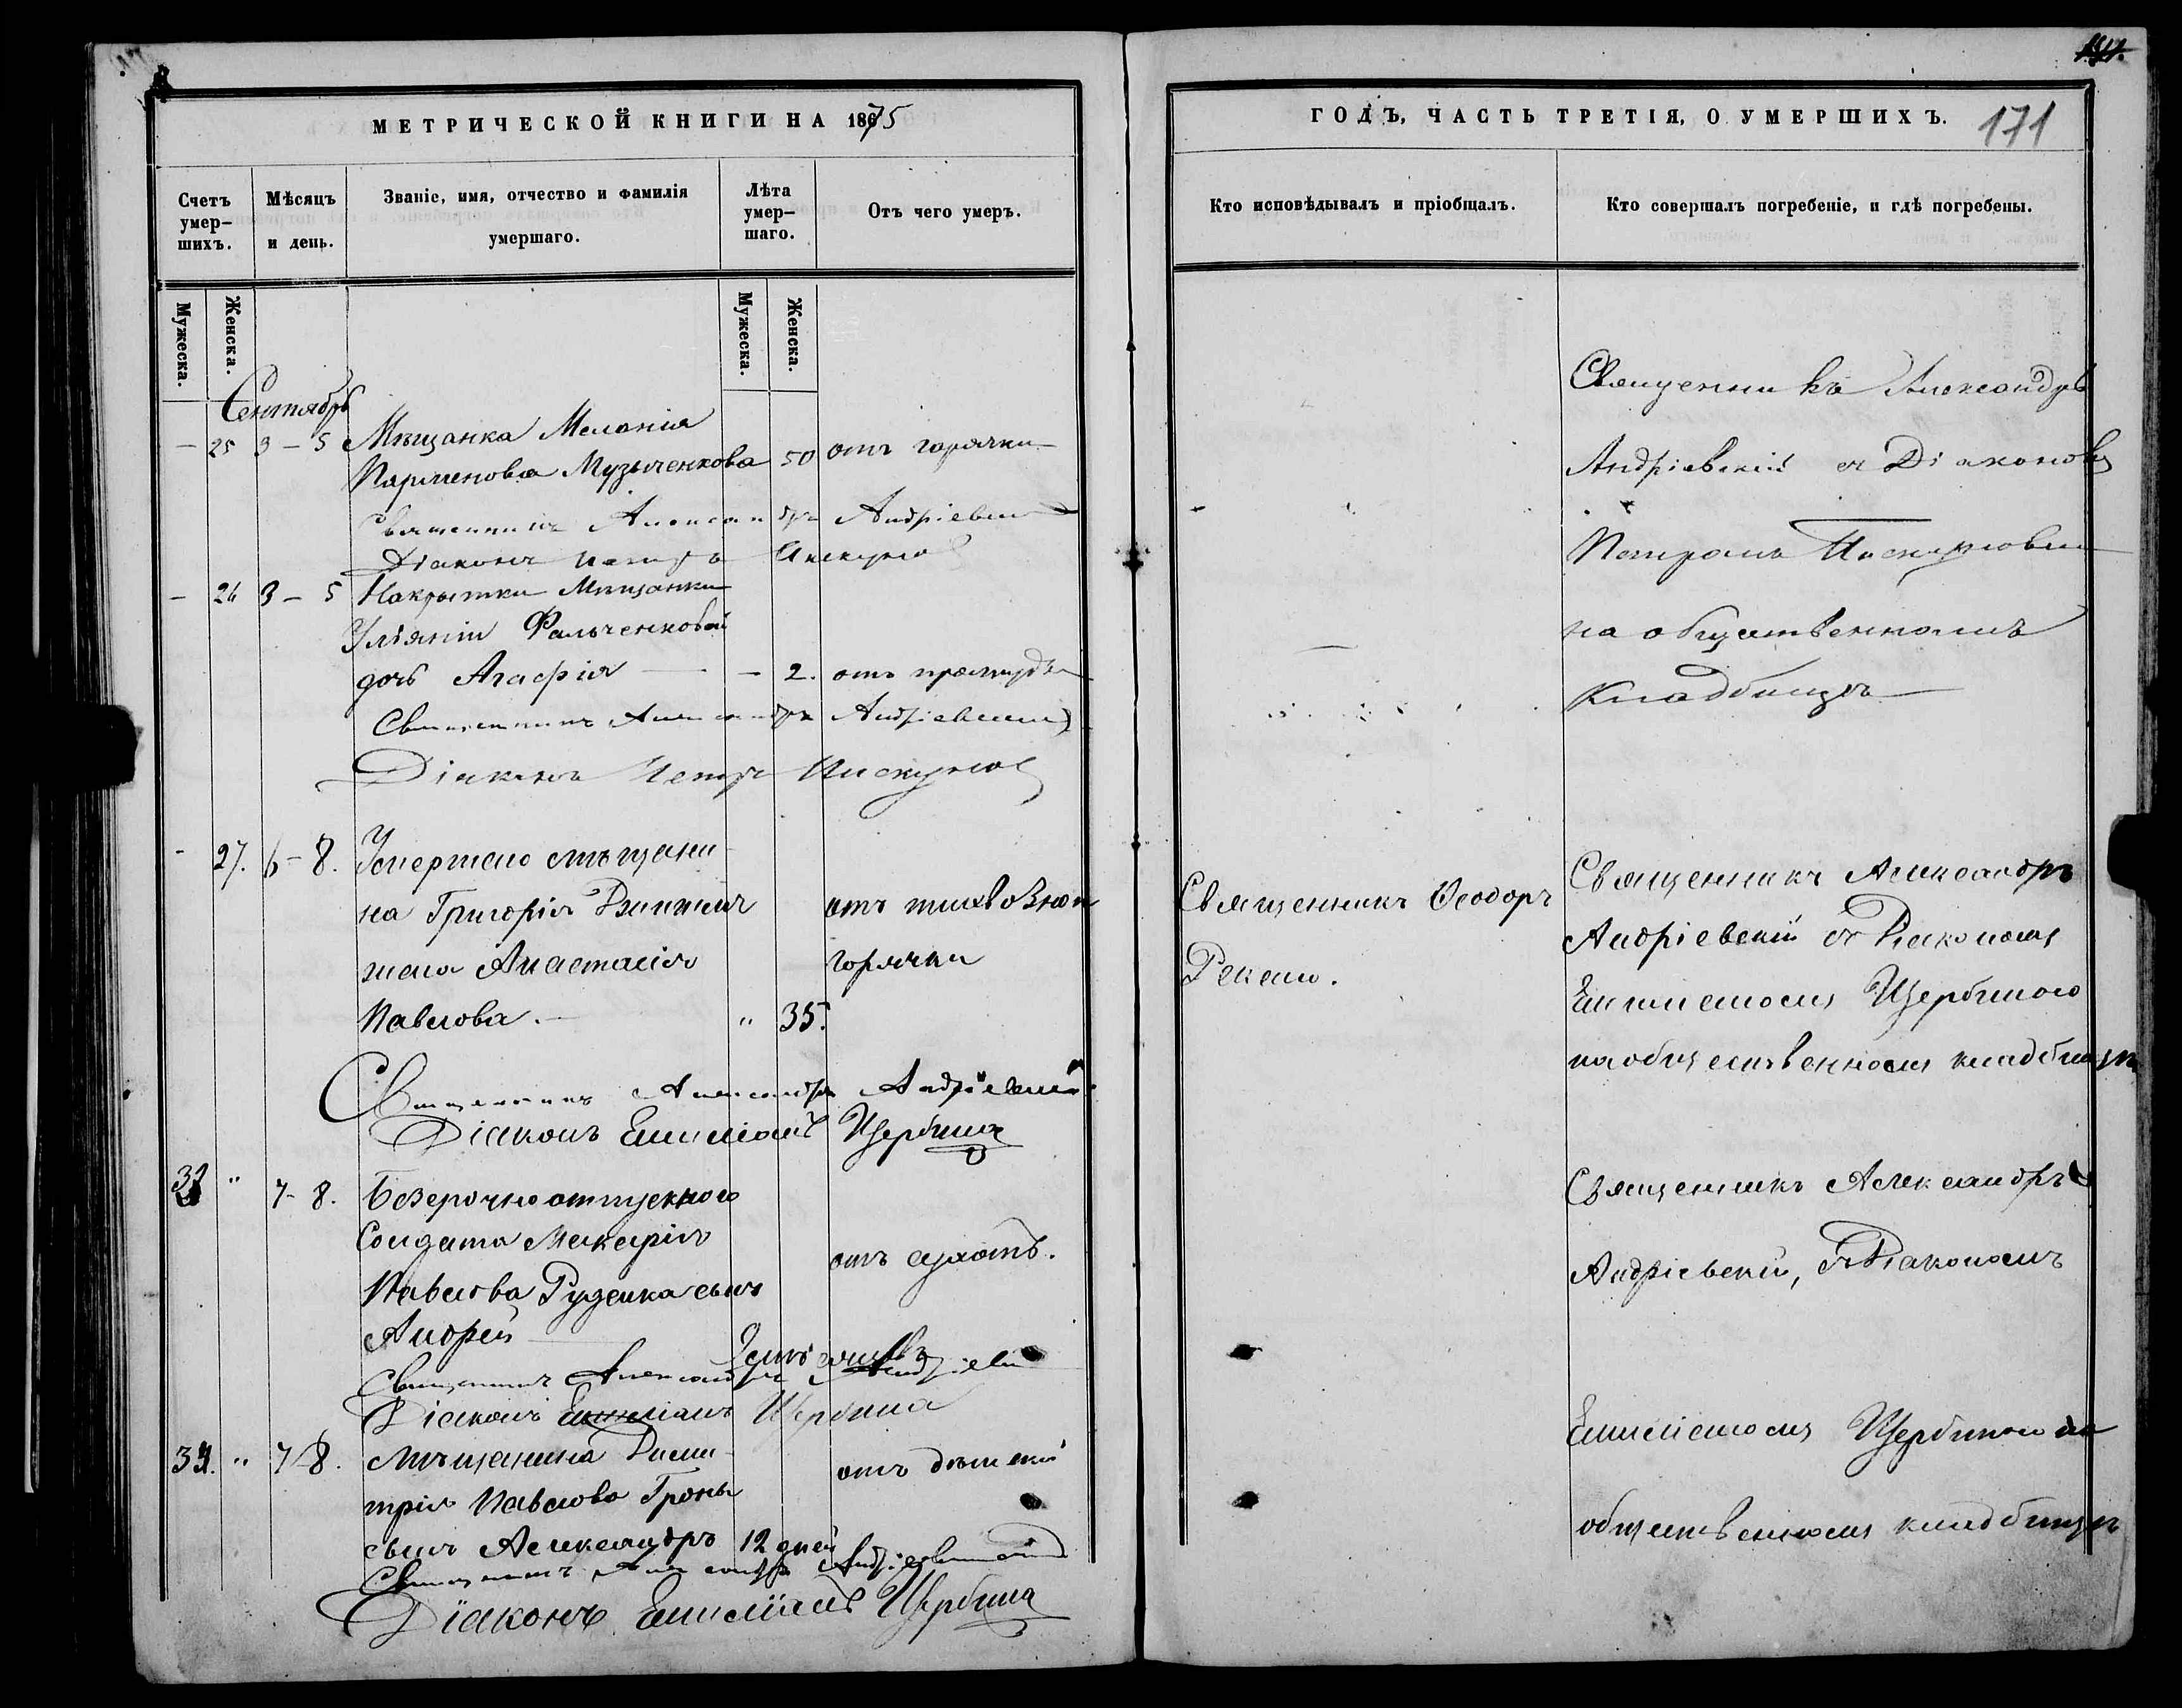 МЕТРИЧЕСКОЙ КНИГИ НА 1875
Счетъ умер-шихъ.
Мѣсяцъ и день.
Званіе, имя, отчество и фамилія умершаго.
Лѣта умер-шаго.
Отъ чего умеръ.
Мужеска.
Женска.
Мужеска.
Женска.
Сентябрь
– 25 3 – 5 Мѣщанка Меланія
Парменова Музыченкова 50 отъ горячки
Священникъ Александръ Андріевскій
Діаконъ Петръ Пискуновъ
– 26 3 – 5 Накрытки Мѣщанки
Уліяніи Фальченковой
дочь Агафія – 2. отъ
Священникъ Александръ Андріевскій
Діаконъ Петръ Пискуновъ
- 27. 6 – 8. Умершаго мѣщани-
на Григорія
отъ тифозной
жена Анастасія горячки
Павлова. " 35.
Священникъ Александръ Андріевскій
Діаконъ Емиліанъ Щербина
" 7 - 8. Безсрочно отпускного
Солдата Макарія
отъ сухотъ.
Павлова Руденка сынъ
Андрей
Священникъ Александръ Андріевскій
Діаконъ Емиліанъ Щербина
" 7 - 8. Мѣщанина Дими-
отъ дѣтской
трія Павлова
сынъ Александръ 12 дней
Священникъ Александръ Андріевскій
Діаконъ Емиліанъ Щербина
ГОДЪ, ЧАСТЬ ТРЕТІЯ, О УМЕРШИХЪ.
171
Кто исповѣдывалъ и пріобщалъ.
Кто совершалъ погребеніе, и гдѣ погребены.
Священникъ Александръ
Андріевскій съ Діакономъ
Петромъ
на общественномъ
Кладбищѣ
Священникъ Ѳеодоръ
Священникъ Александръ
Андріевскій съ Діакономъ
Емиліаномъ Щербиною
на общественномъ кладбищѣ
Священникъ Александръ
Андріевскій, съ Діакономъ
Емиліаномъ Щербиною на
общественномъ кладбищѣ